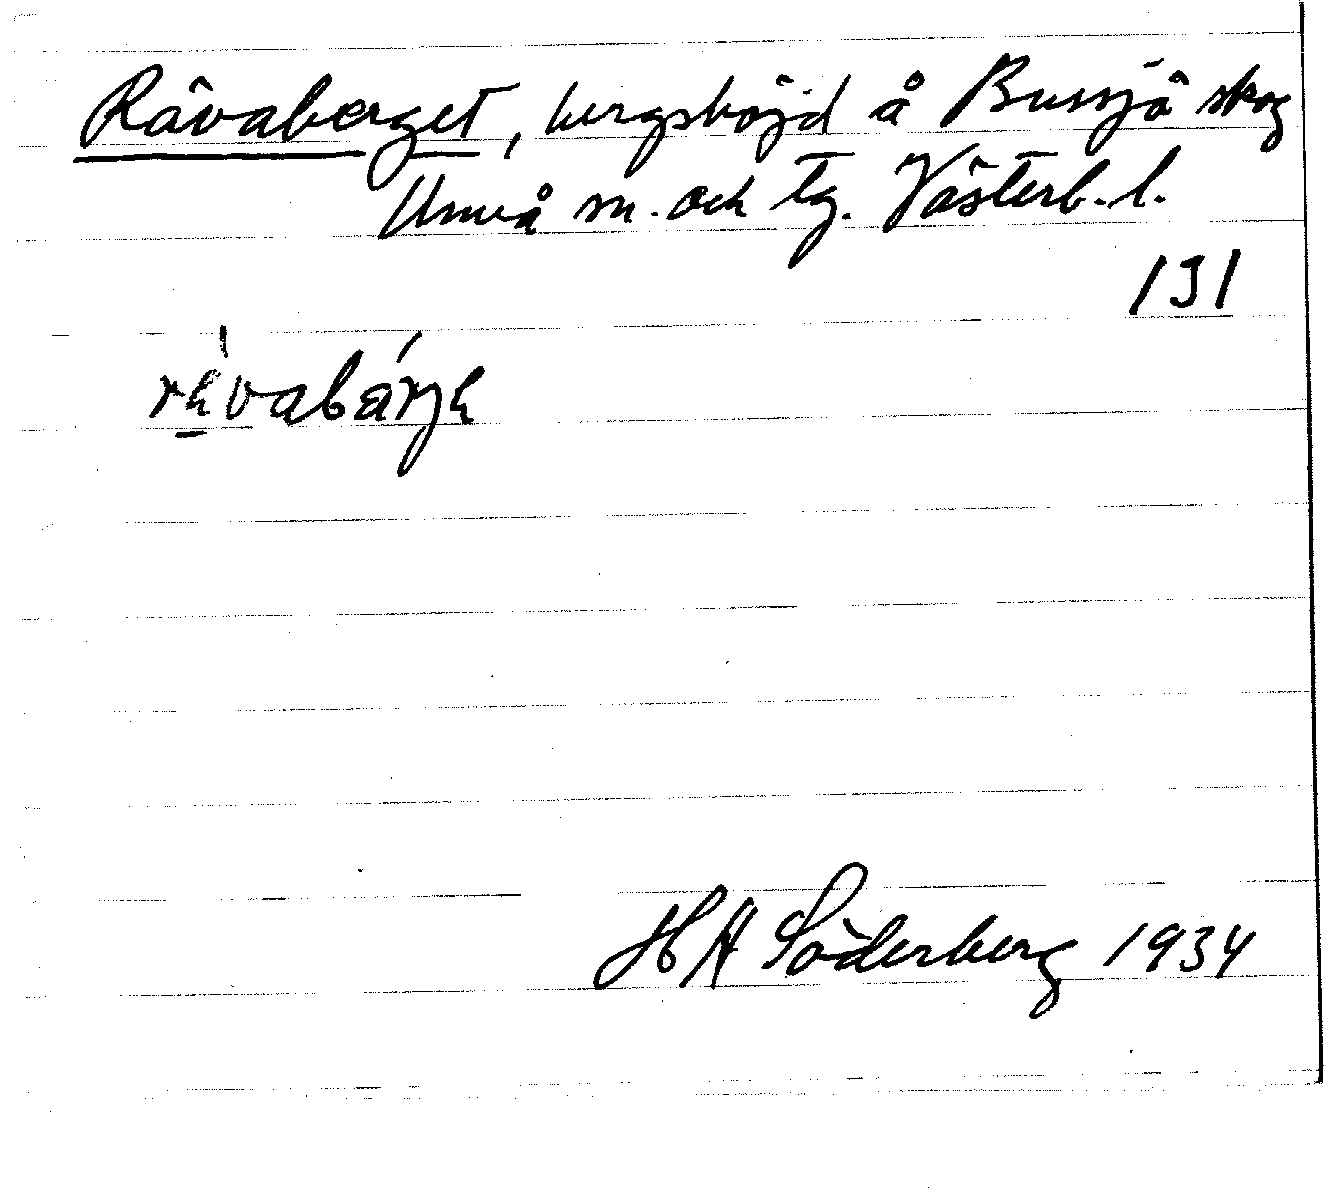 Rävaberget, bergshöjd å Bussjö skog
Umeå sn. och tg. Västerb. l.
131
H A Söderberg 1934